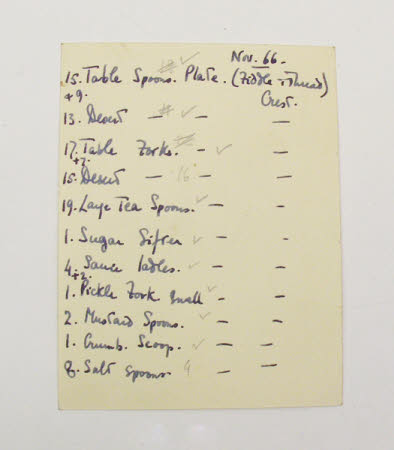 Nov. 66.
15. Table Spoons. Plate. (Fiddle + Thread)
+9. Crest.
13. Desert — — —
17. Table Forks. — —
+7.
15. Desert — 16 — —
19. Large Tea Spoons. — —
1. Sugar Sifter — -
4. Sauce ladles. — —
+2.
1. Pickle Fork Small - —
2. Mustard Spoons. — —
1. Crumb. Scoop. — —
8. Salt spoons 4 — —